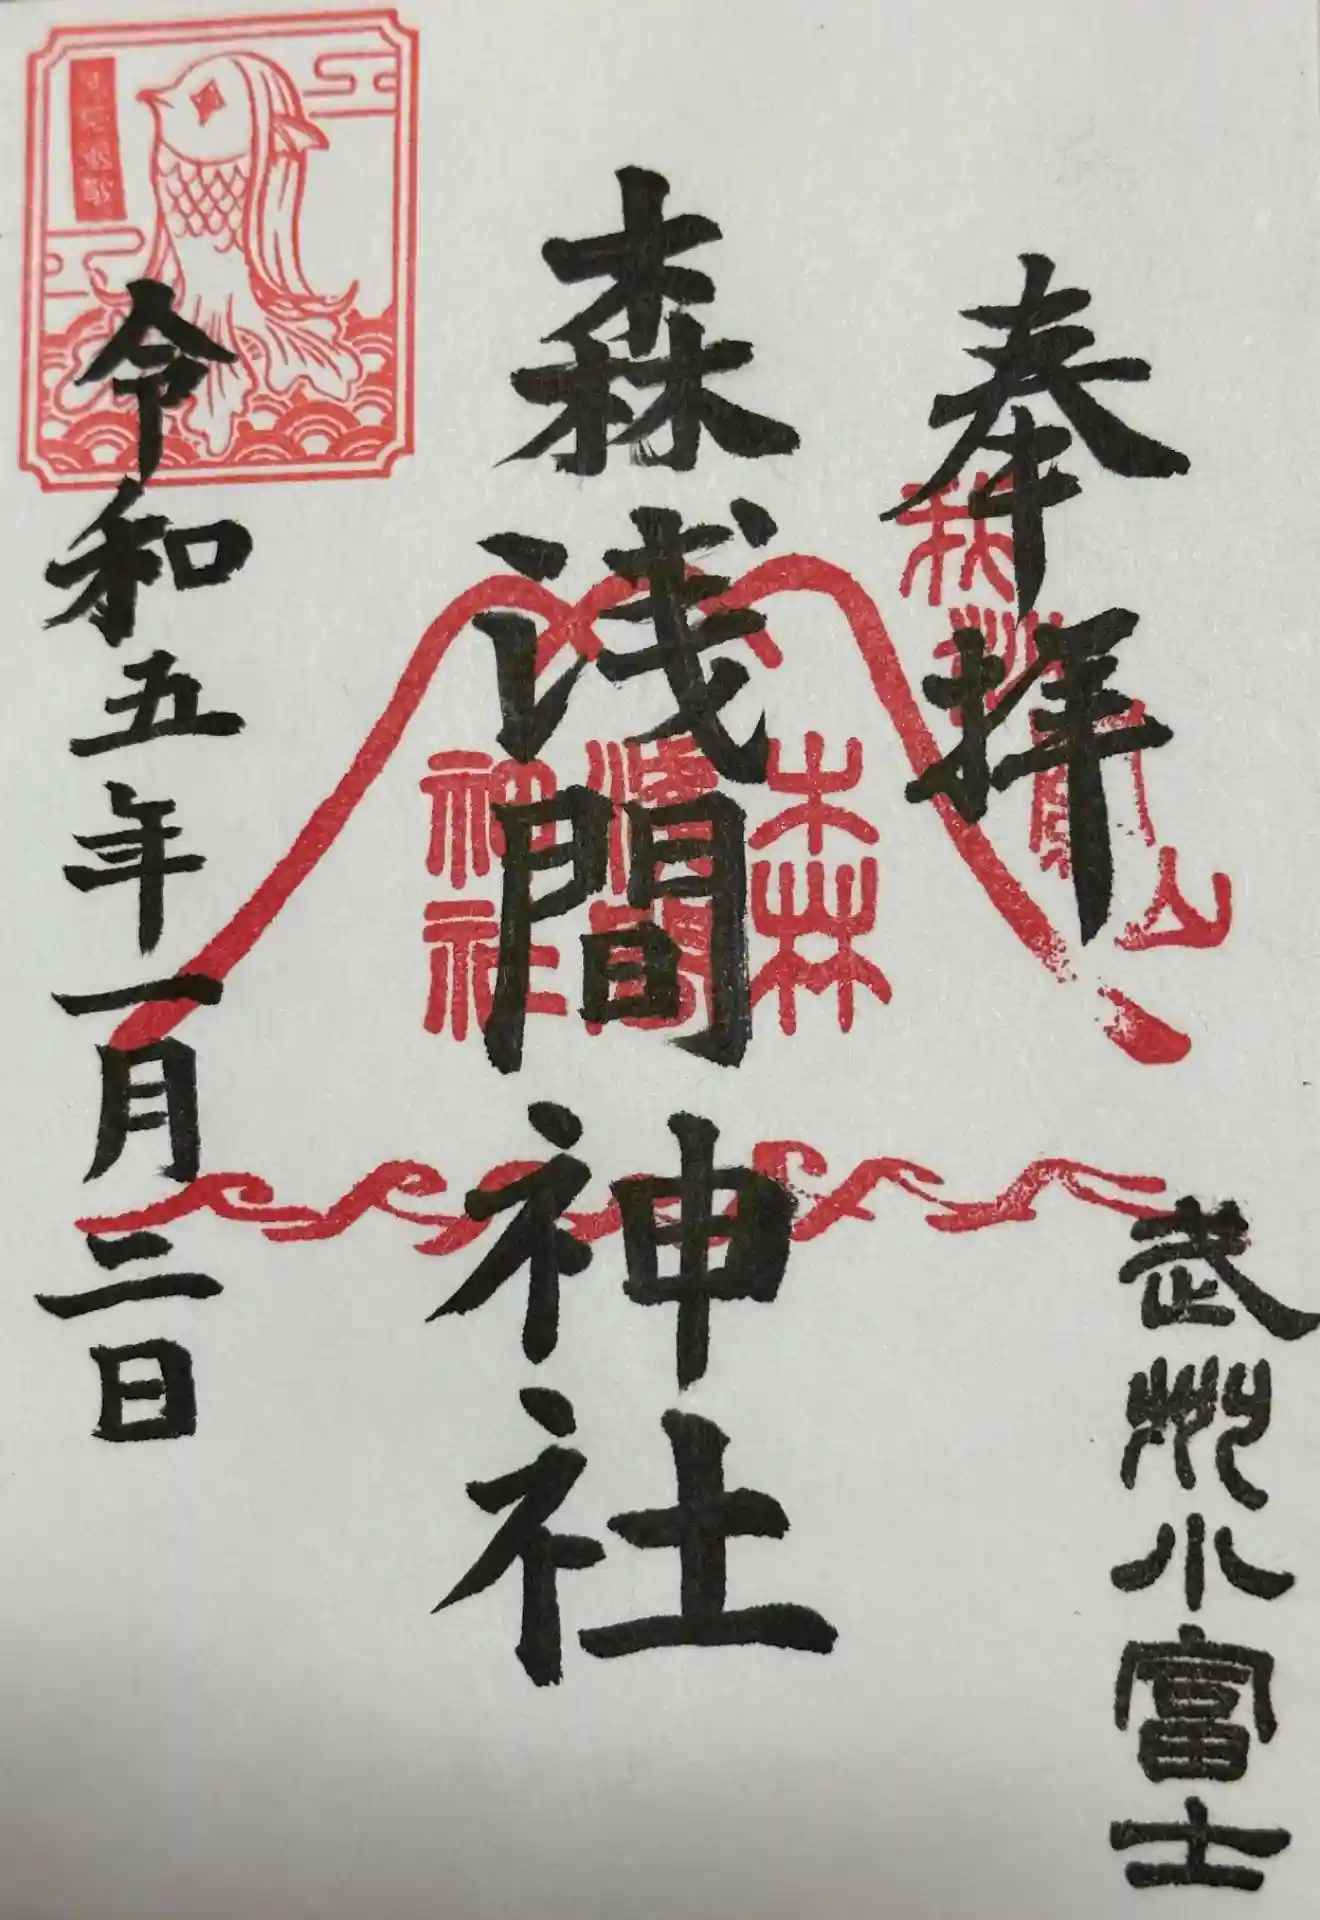 奉拝
武州小富士
森浅間神社
森
浅間
神社
令和五年一月三日